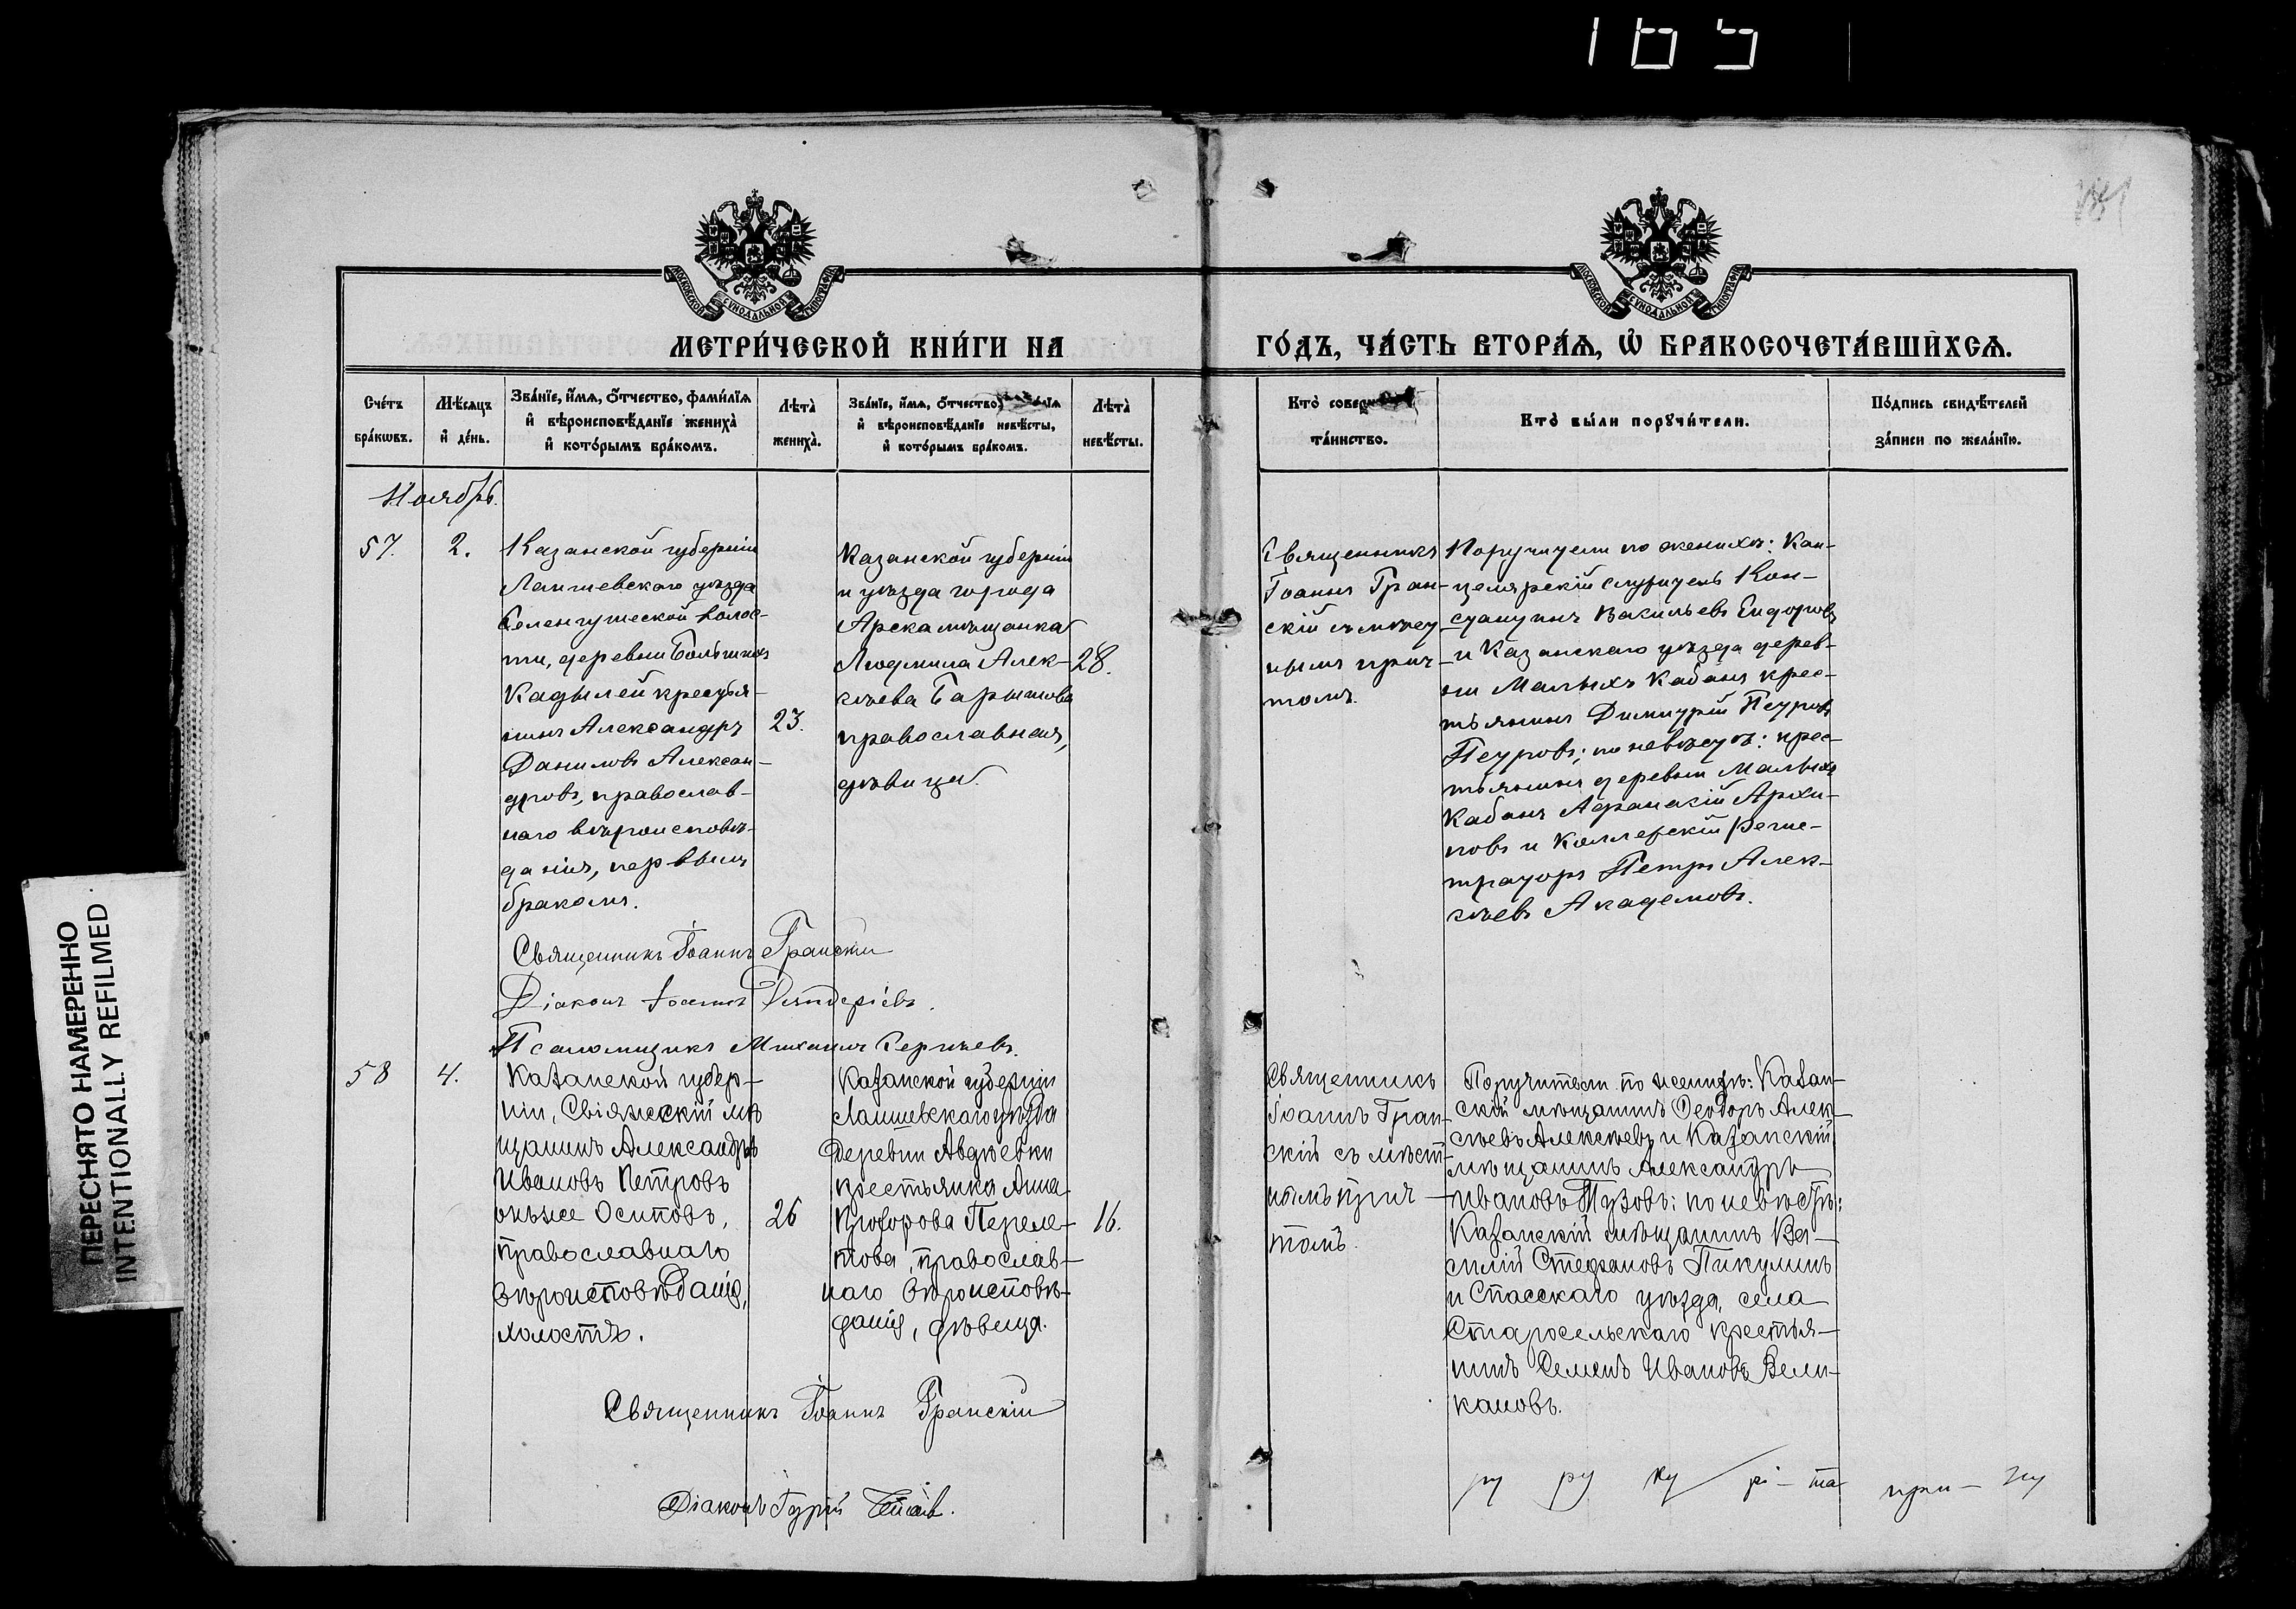 165
ПЕРЕСНЯТО НАМЕРЕННО
INTENTIONALLY REFILMED
МОСКОВСКОЙ СѴНОДАЛЬНОЙ ТИПОГРАФІИ
МОСКОВСКОЙ СѴНОДАЛЬНОЙ ТИПОГРАФІИ
МЕТРИ́ЧЕСКОЙ КНИ́ГИ НА
ГО́ДЪ, ЧА́СТЬ ВТОРА́Ѧ, Ѡ҆ БРАКОСОЧЕТА́ВШИХСѦ.
Сче́тъ
бра́кѡвъ.
Мѣ́сяцъ
и҆ де́нь.
Зва́нїе, и҆́мѧ, ѻ҆́тчество, фами́лїѧ
и҆ вѣроисповѣ́данїе жениха̀
и҆ кото́рымъ бра́комъ.
Лѣта̀
жениха̀.
Зва́нїе, и҆́мѧ, ѻ҆́тчество,
и҆ вѣроисповѣ́данїе невѣ́сты,
и҆ кото́рымъ бра́комъ.
Лѣта̀
невѣ́сты.
Кто̀
та́инство.
Кто̀ бы́ли порꙋчи́тели.
По́дпись свидѣ́телей
за́писи по жела́нїю.
Ноябрь.
57.
2.
Казанской губерніи
Лаишевскаго уѣзда
Селенгушской волос-
ти, деревни Большихъ
Кадылей крестья-
нинъ Александръ
Даниловъ Алексан-
дровъ, православ-
наго вѣроисповѣ-
данія, первымъ
бракомъ.
23.
Казанской губерніи
и уѣзда города
Арска мѣщанка
Людмила Алек-
сѣева Барышова
православная,
дѣвица.
28.
Священникъ
Іоаннъ Гран-
скій съ мѣст
нымъ прич-
томъ.
Поручители по женихѣ: Кан-
целярскій служитель Кон-
стантинъ Васильевъ Евдоровъ
и Казанскаго уѣзда дерев-
ни Малыхъ Кабанъ крес-
тьянинъ Димитрій Петровъ
Петровъ; по невѣстѣ: крес-
тьянинъ деревни Малыхъ
Кабанъ Афанасій Архи-
повъ и Коллежскій Регис-
траторъ Петръ Алек-
сѣевъ Академовъ.
Священникъ Іоаннъ Гранскій
Діаконъ Іоаннъ
Псаломщикъ Михаилъ Сергѣевъ.
58
4.
Казанской губер-
ніи, Свіяжскій мѣ
щанинъ Александръ
Ивановъ Петровъ
онъ же Осиповъ,
православнаго
вѣроисповѣданія,
холостъ.
26
Казанской губерніи
Лаишевскаго уѣзда
деревни Авдѣевки
крестьянка Анна
Прохорова Переле-
това, православ-
наго вѣроисповѣ-
данія, дѣвица.
16.
Священникъ
Іоаннъ Гран-
скій съ мѣст-
нымъ прич-
томъ.
Поручители по женихѣ: Казан-
скій мѣщанинъ Ѳеодоръ Алек-
сѣевъ Алексѣевъ и Казанскій
мѣщанинъ Александръ
Ивановъ Тузовъ: по невѣстѣ:
Казанскій мѣщанинъ Ва-
силій Стефановъ Пикулинъ
и Спасскаго уѣзда, села
Старосельскаго крестья-
нинъ Семенъ Ивановъ Вели-
кановъ.
Священникъ Іоаннъ Гранскій
Діаконъ Гурій